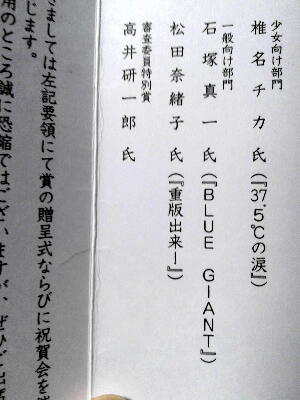 少女向け部門
椎名チカ 氏(『37.5℃の涙』)
一般向け部門
石塚真一 氏(『BLUE GIANT』)
松田奈緒子 氏(『重版出来!』)
審査委員特別賞
高井研一郎 氏
きましては左記要領にて賞の贈呈式ならびに祝賀会を
じます。
用のところ誠に恐縮ではございますが、ぜひご出